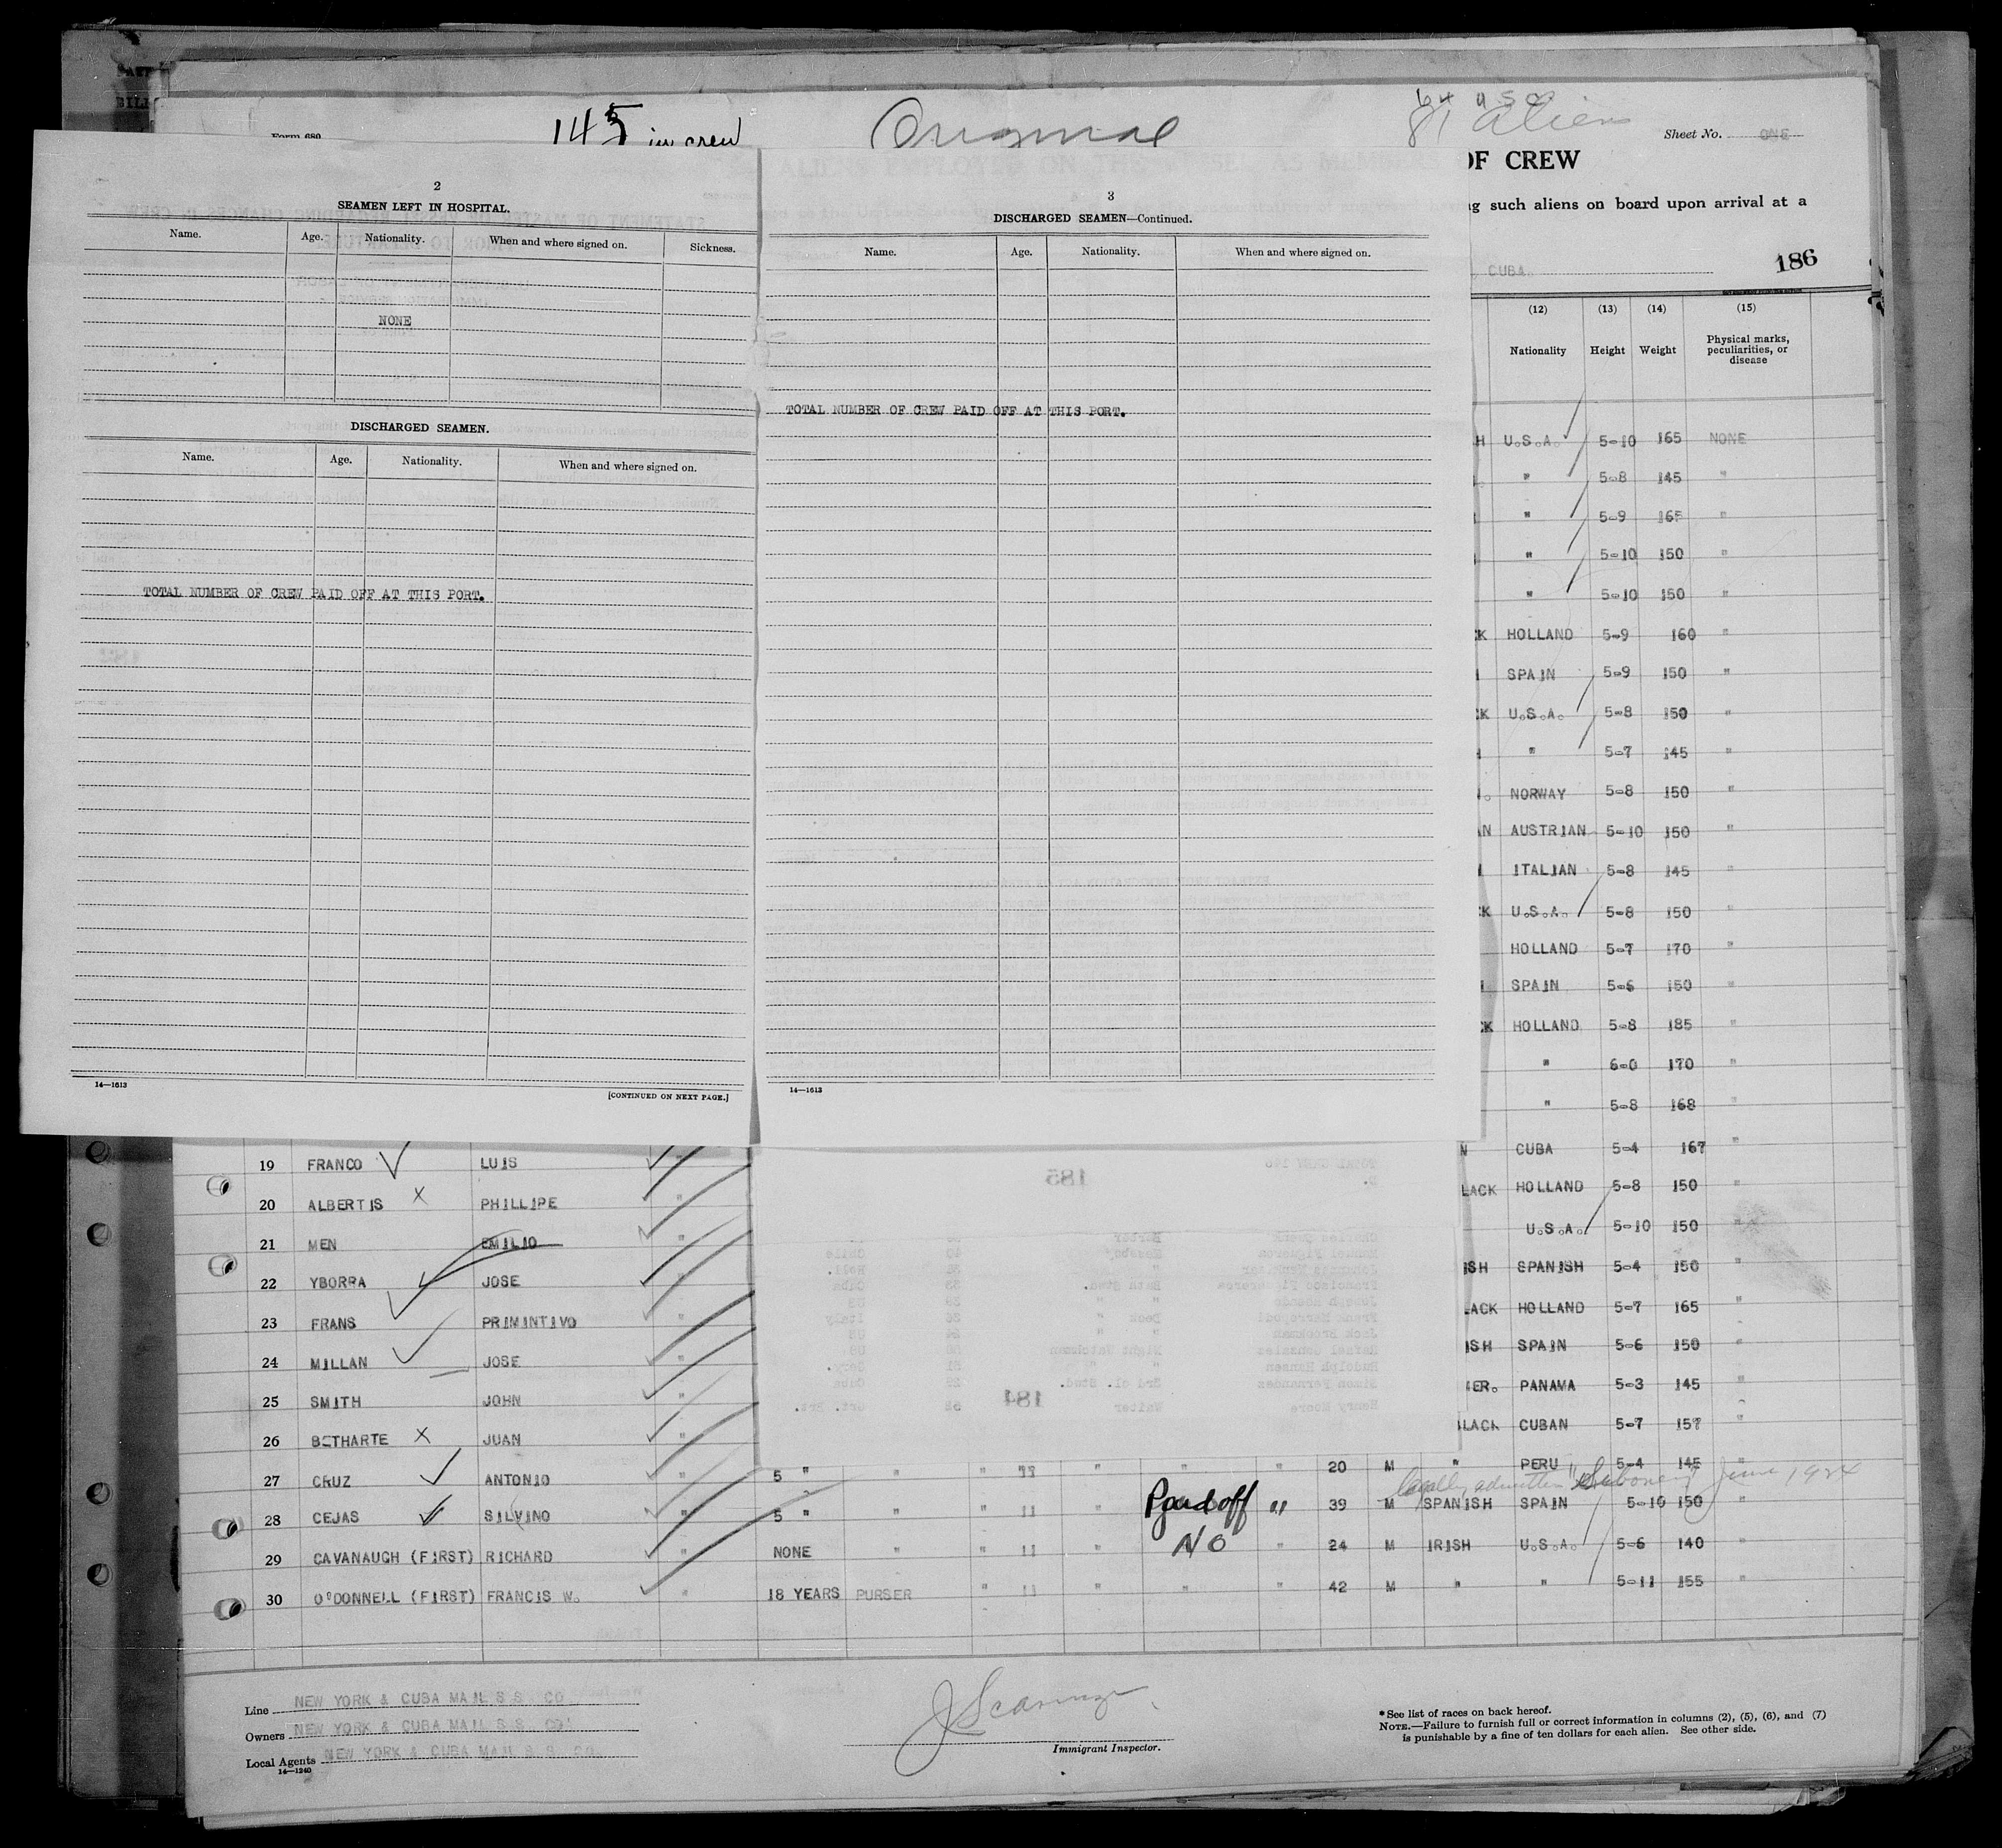 Form 680
145 in crew
Original
64 USC
81 Aliens
Sheet No. ONE
OF CREW
such aliens on board upon arrival at a
CUBA
186
2
SEAMEN LEFT IN HOSPITAL.
Name. Age. Nationality. When and where signed on. Sickness.
NONE
DISCHARGED SEAMEN.
Name. Age. Nationality. When and where signed on.
TOTAL NUMBER OF CREW PAID OFF AT THIS PORT.
14—1613
[CONTINUED ON NEXT PAGE.]
3
DISCHARGED SEAMEN—Continued.
Name. Age. Nationality. When and where signed on.
TOTAL NUMBER OF CREW PAID OFF AT THIS PORT.
14—1613
(12) (13) (14) (15)
Nationality Height Weight Physical marks, peculiarities, or disease
H U.S.A. 5-10 165 NONE
" 5-8 145 "
" 5-9 165 "
" 5-10 150 "
" 5-10 150 "
CK HOLLAND 5-9 160 "
SPAIN 5-9 150 "
CK U.S.A. 5-8 150 "
" 5-7 145 "
NORWAY 5-8 150 "
AN AUSTRIAN 5-10 150 "
ITALIAN 5-8 145 "
CK U.S.A. 5-8 150 "
HOLLAND 5-7 170 "
SPAIN 5-6 150 "
CK HOLLAND 5-8 185 "
" 6-0 170 "
" 5-8 168 "
19 FRANCO LUIS " N CUBA 5-4 167 "
20 ALBERTIS X PHILLIPE " LACK HOLLAND 5-8 150 "
21 MEN EMILIO U.S.A. 5-10 150
22 YBORRA JOSE " ISH SPANISH 5-4 150 "
23 FRANS PRIMINTIVO " LACK HOLLAND 5-7 165 "
24 MILLAN JOSE " ISH SPAIN 5-6 150 "
25 SMITH JOHN " ER. PANAMA 5-3 145 "
26 BETHARTE X JUAN " LACK CUBAN 5-7 157 "
27 CRUZ ANTONIO " 5 " " " " " " 20 M " PERU 5-4 145 "
legally admitted "Siboney" June 1924
28 CEJAS SILVINO " 5 " " " 11 " Paid off " 39 M SPANISH SPAIN 5-10 150 "
29 CAVANAUGH (FIRST) RICHARD " NONE " " 11 " NO " 24 M IRISH U.S.A. 5-6 140 "
30 O'DONNELL (FIRST) FRANCIS W. " 18 YEARS PURSER " 11 " " " 42 M " " 5-11 155 "
Line NEW YORK & CUBA MAIL S S CO
Owners NEW YORK & CUBA MAIL S S CO
Local Agents NEW YORK & CUBA MAIL S S CO
14—1240
Immigrant Inspector.
*See list of races on back hereof.
NOTE.—Failure to furnish full or correct information in columns (2), (5), (6), and (7)
is punishable by a fine of ten dollars for each alien. See other side.